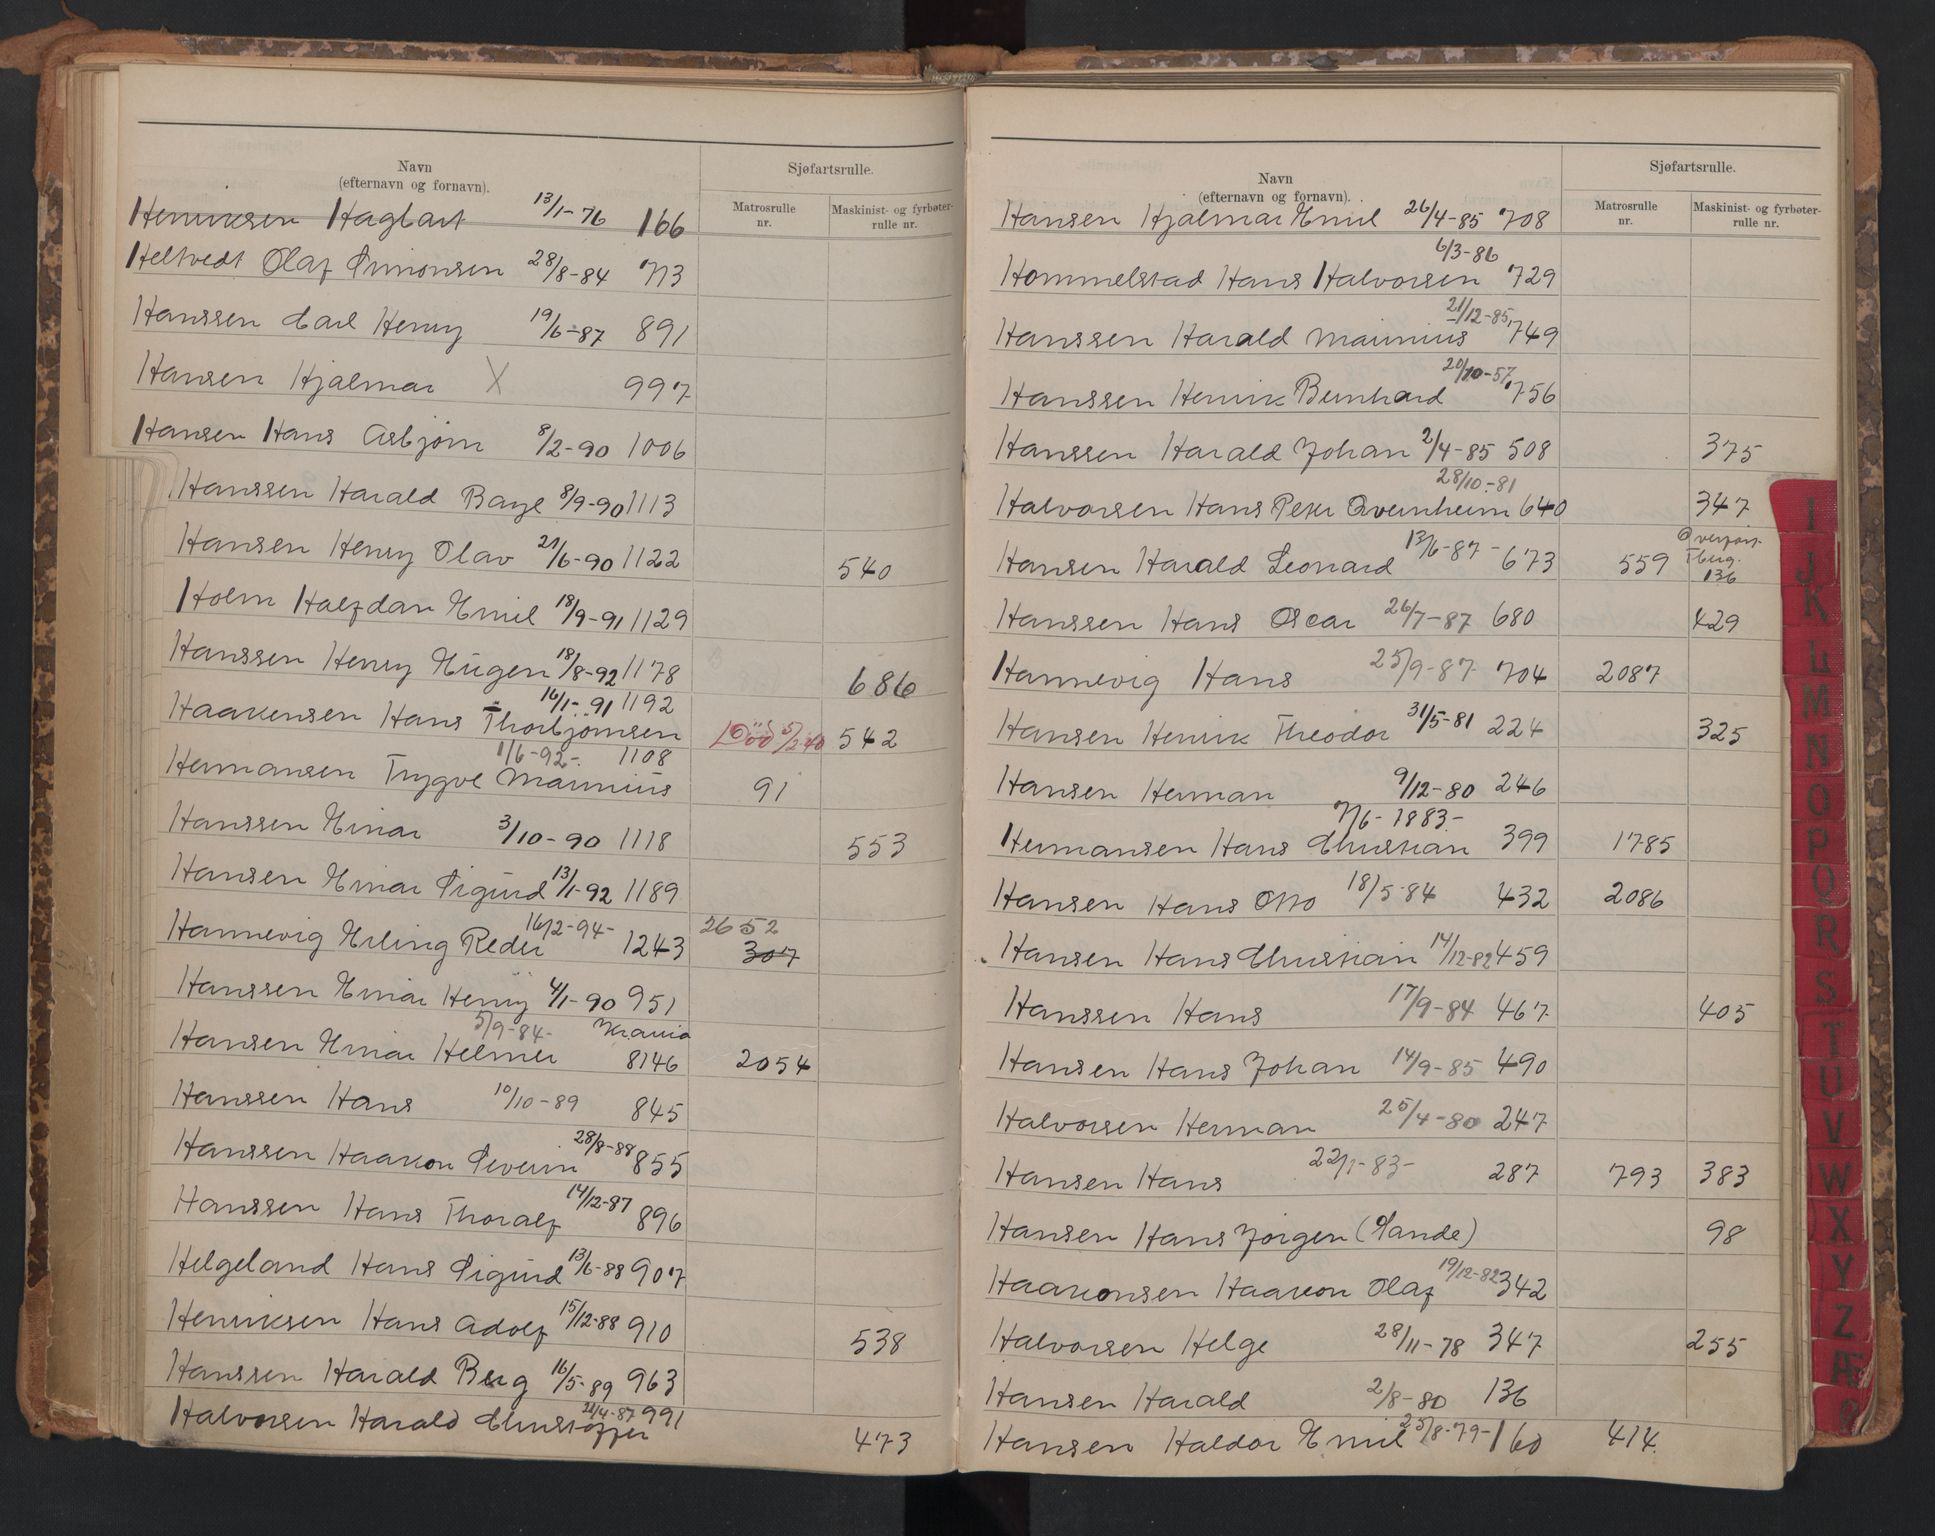 Navn
(efternavn og fornavn).
Sjøfartsrulle.
Matrosrulle nr.
Maskinist- og fyrbøter-rulle nr.
Henriksen Hagbart 13/1-76 166
Heltvedt Olaf Simonsen 28/8-84 713
Hanssen Carl Henry 19/6-87 891
Hansen Hjalmar X 997
Hansen Hans Asbjørn 8/2-90 1006
Hanssen Harald 8/9-90 1113
Hansen Henry Olav 21/6-90 1122 540
Holm Halfdan Emil 18/9-91 1129
Hanssen Henry Eugen 18/8-92 1178 686
Haakensen Hans Thorbjørnsen 16/1-91 1192 Død 5/2 40 542
Hermansen Trygve Marinius 1/6-92- 1108 91
Hanssen Einar 3/10-90 1118 553
Hansen Einar Sigurd 13/1-92 1189
Hannevig Erling Reder 16/2-94- 1243 2652 307
Hanssen Einar Henry 4/1-90 951
Hansen Einar Helmer 5/9-84- Krania 8146 2054
Hanssen Hans 10/10-89 845
Hanssen Haakon Severin 28/8-88 855
Hanssen Hans Thoralf 14/12-87 896
Helgeland Hans Sigurd 13/6-88 907
Henriksen Hans Adolf 15/12-88 910 538
Hanssen Harald Berg 16/5-89 963
Halvorsen Harald Christoffer 22/4-87 991 473
Navn
(efternavn og fornavn).
Sjøfartsrulle.
Matrosrulle nr.
Maskinist- og fyrbøter-rulle nr.
Hansen Hjalmar Emil 26/4-85 708
Hommelstad Hans Halvorsen 6/3-86 729
Hanssen Harald Marinius 21/12-85 749
Hanssen Henrik Bernhard 20/10-57 756
Hanssen Harald Johan 2/4-85 508 375
Halvorsen Hans Peter Qvernheim 28/10-81 640 347
Hansen Harald Leonard 13/6-87- 673 559 Overført Tbrg. 136
Hanssen Hans Oscar 26/7-87 680 429
Hannevig Hans 25/9-87 704 2087
Hansen Henrik Theodor 31/5-81 224 325
Hansen Herman 9/12-80 246
Hermansen Hans Christian 7/6-1883- 399 1785
Hansen Hans Otto 18/5-84 432 2086
Hansen Hans Christian 14/12-82 459
Hanssen Hans 17/9-84 467 405
Hansen Hans Johan 14/9-85 490
Halvorsen Herman 25/4-80 247
Hansen Hans 22/1-83- 287 793 383
Hansen Hans Jørgen (Sande) 98
Haakonsen Haakon Olaf 19/12-82 342
Halvorsen Helge 28/11-78 347 255
Hansen Harald 2/8-80 136
Hansen Haldor Emil 25/8-79- 160 414.
I
J
K
L
M
N
O
P
Q
R
S
T
U
V
W
X
Y
Z
Æ
Ø